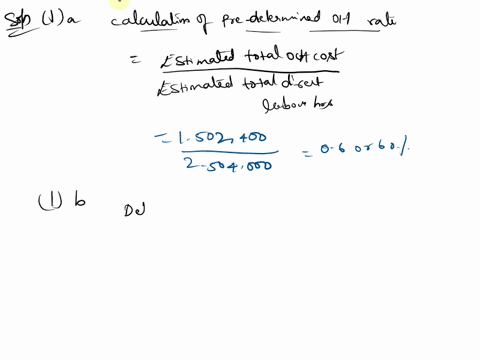 Sol (1) a calculation of pre-determined OH rate
= Estimated total OH cost
Estimated total direct
labour hrs
= 1.502,400
2.504,000
= 0.6 or 60%
(1) b